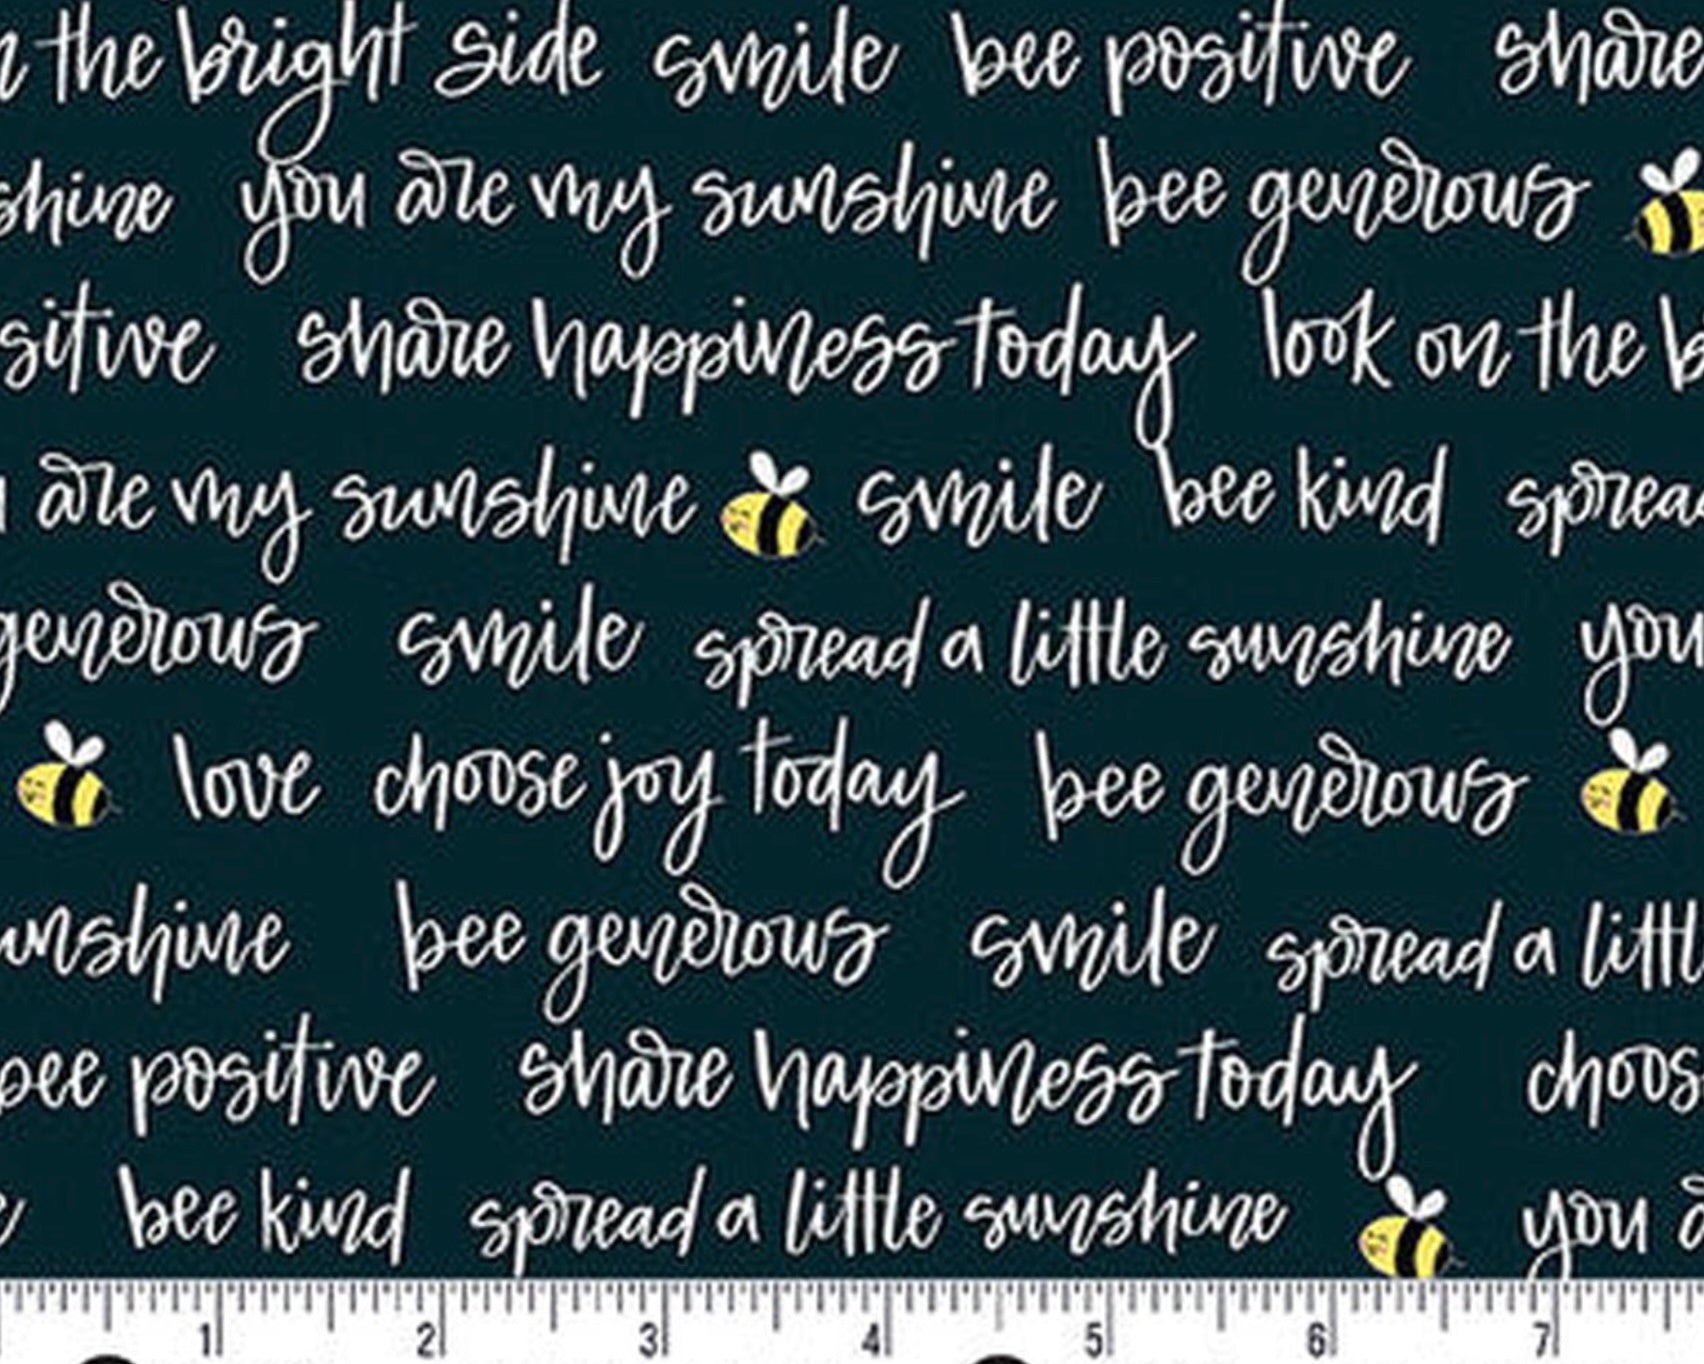 the bright side smile bee positive share
shine you are my sunshine bee generous
sitive share happiness today look on the b
are my sunshine smile bee kind sprea
generous smile spread a little sunshine you
love choose joy today bee generous
unshine bee generous smile spread a littl
bee positive share happiness today choos
bee kind spread a little sunshine you a
1 2 3 4 5 6 7